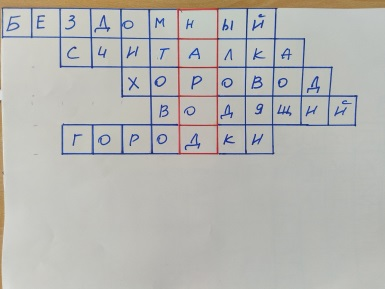 БЕЗДОМНЫЙ
СЧИТАЛКА
ХОРОВОД
ВОДЯЩИЙ
ГОРОДКИ